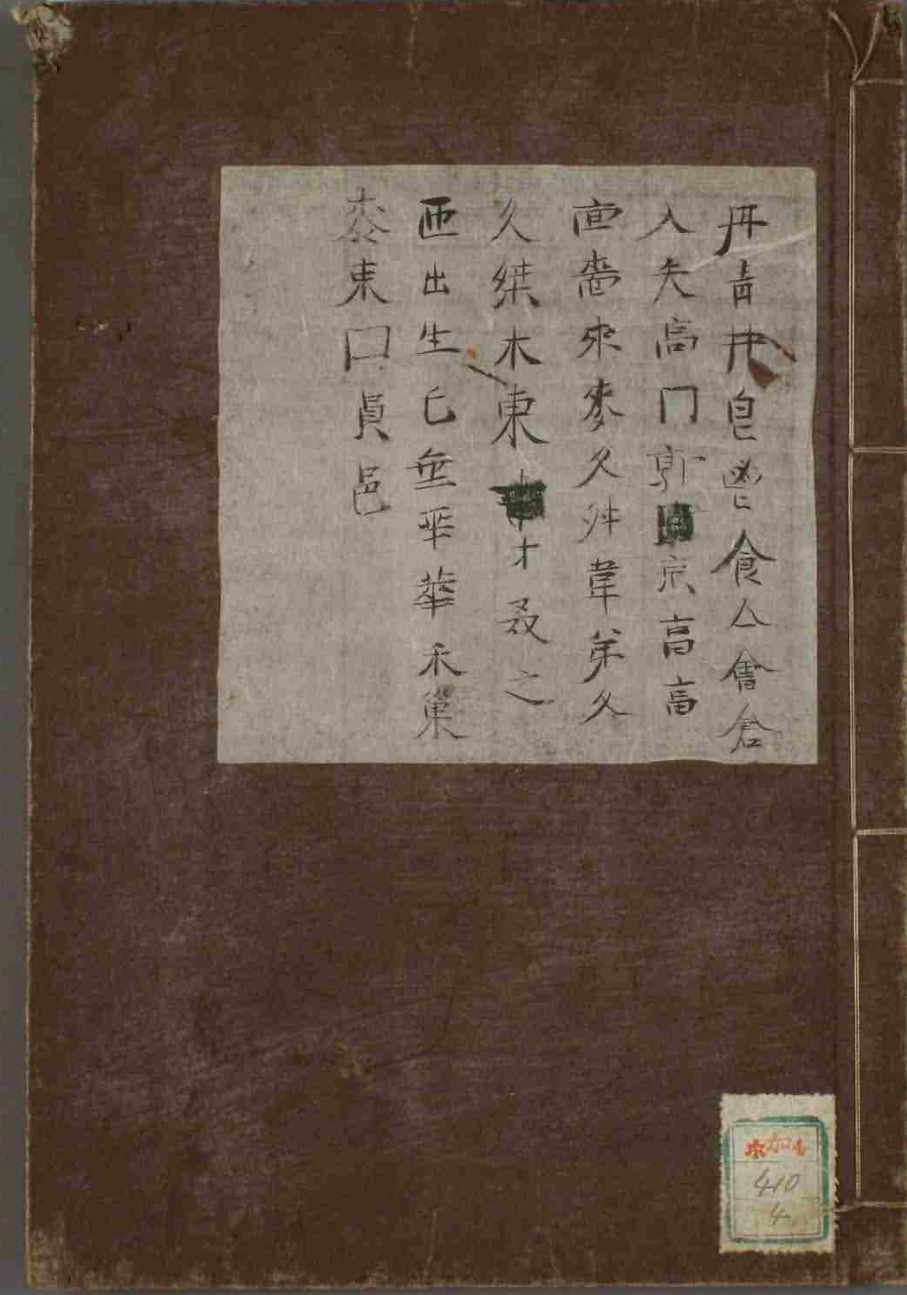 丹青井皀鬯食亼會倉
入矢高冂郭京亯畗
㐭嗇來麥夊舛韋弟夂
久桀木東才叒之
匝出生乇垂𠌶華禾巢
桼束囗員邑
京加𠮷
410
4